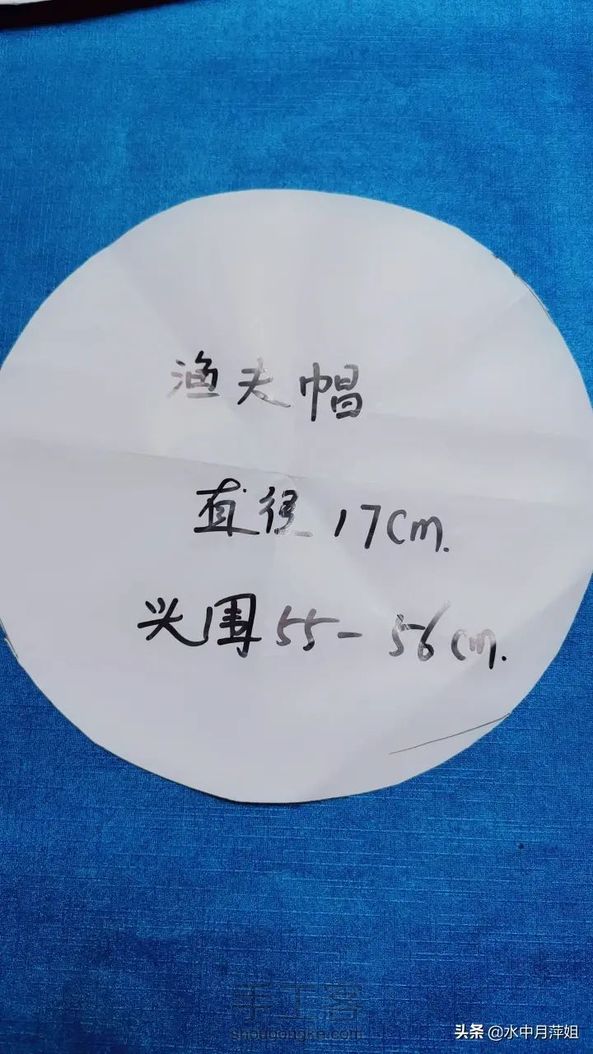 渔夫帽
直径17cm.
头围55-56cm.
手工客
shougongke.com
头条 @水中月萍姐